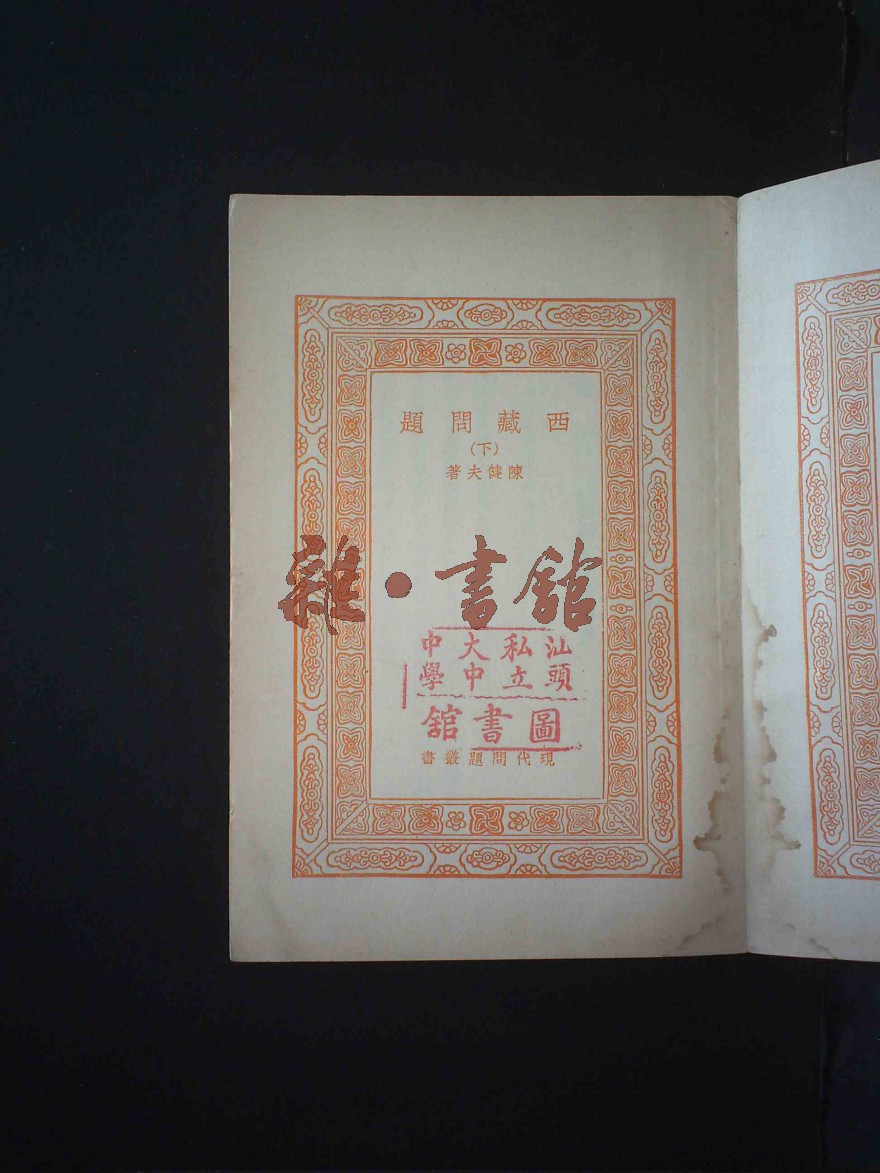 西藏問題
(下)
陳健夫著
雜·書舘
汕頭私立大中中學
圖書舘
現代問題叢書